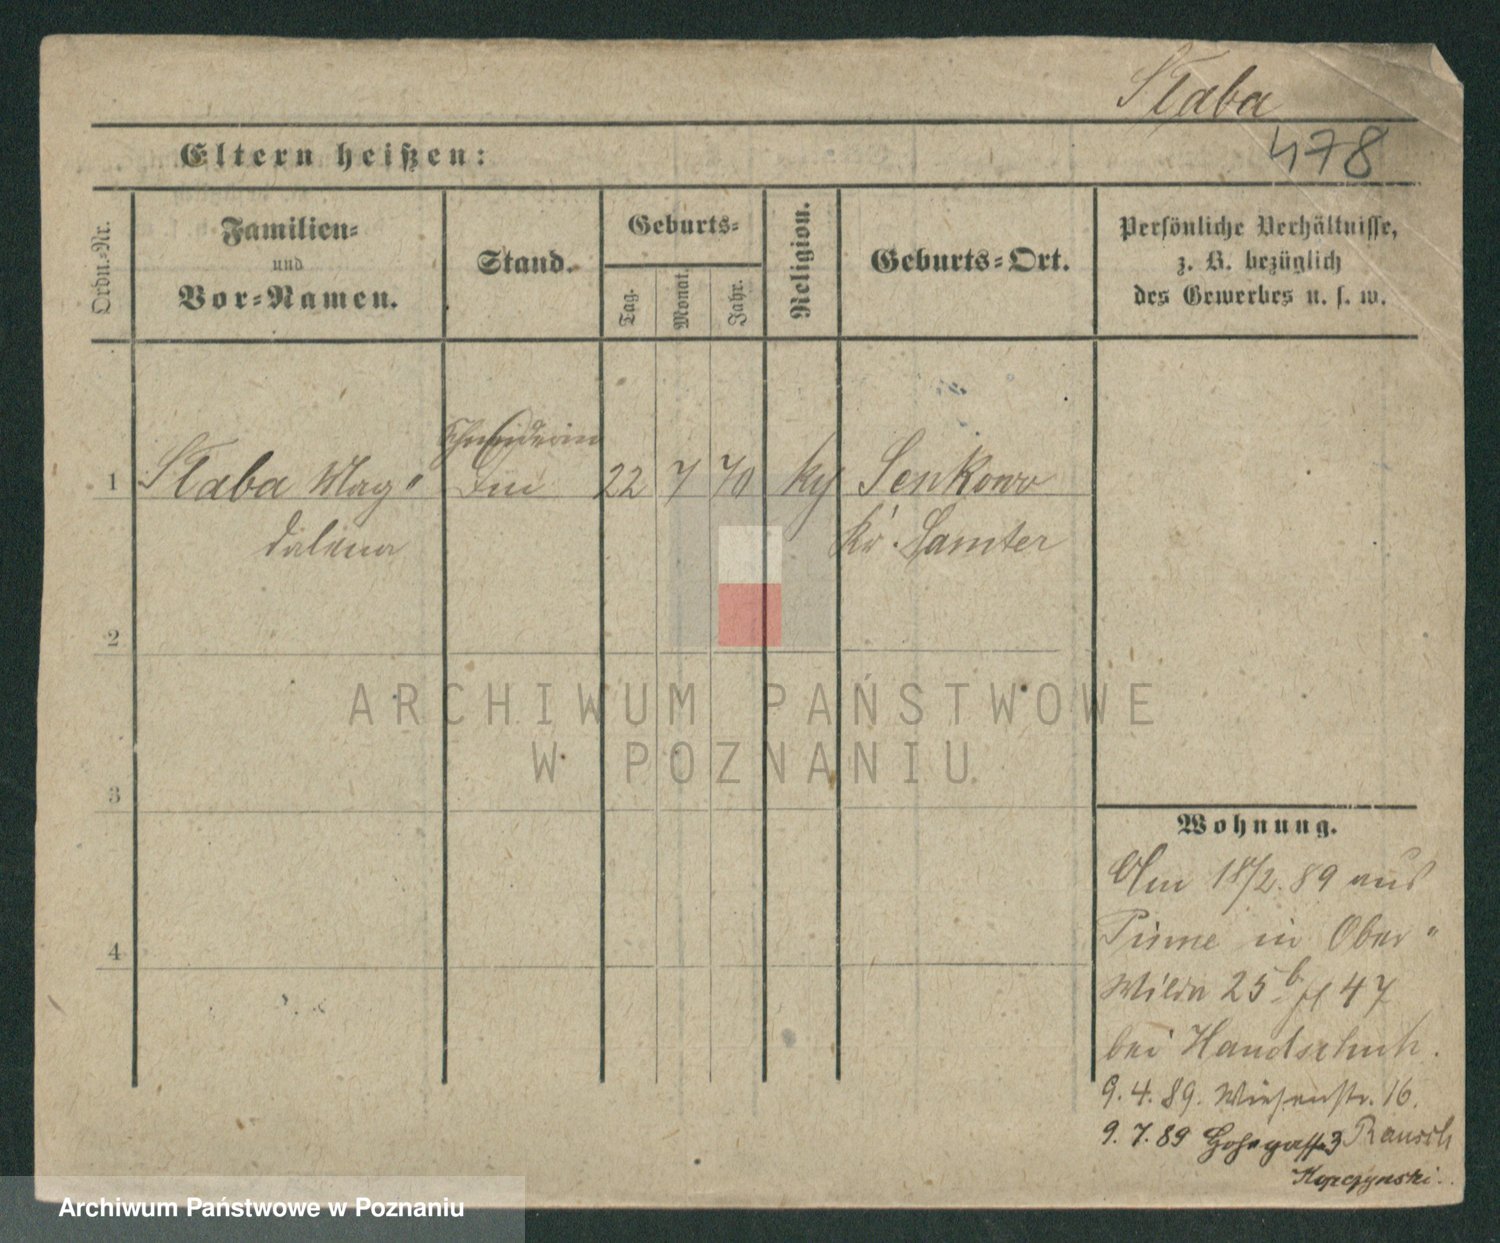 Słaba
478
Eltern heißen:
Ordn.-Nr.
Familien-
und
Vor-Namen.
Stand.
Geburts-
Tag.
Monat.
Jahr.
Religion.
Geburts-Ort.
Persönliche Verhältnisse,
z. B. bezüglich
des Gewerbes u. s. w.
Schneiderin
1 Słaba Mag" 22 7 70 Senkowo
dalena Kr. Samter
2
3
4
ARCHIWUM PAŃSTWOWE
W POZNANIU
Wohnung.
Am 18/2. 89 aus
Pinne in Ober"
Wilda 25 b 47
bei Handschuh.
9. 4. 89. Wiesenstr. 16.
9. 7. 89 3 Rausch
Archiwum Państwowe w Poznaniu